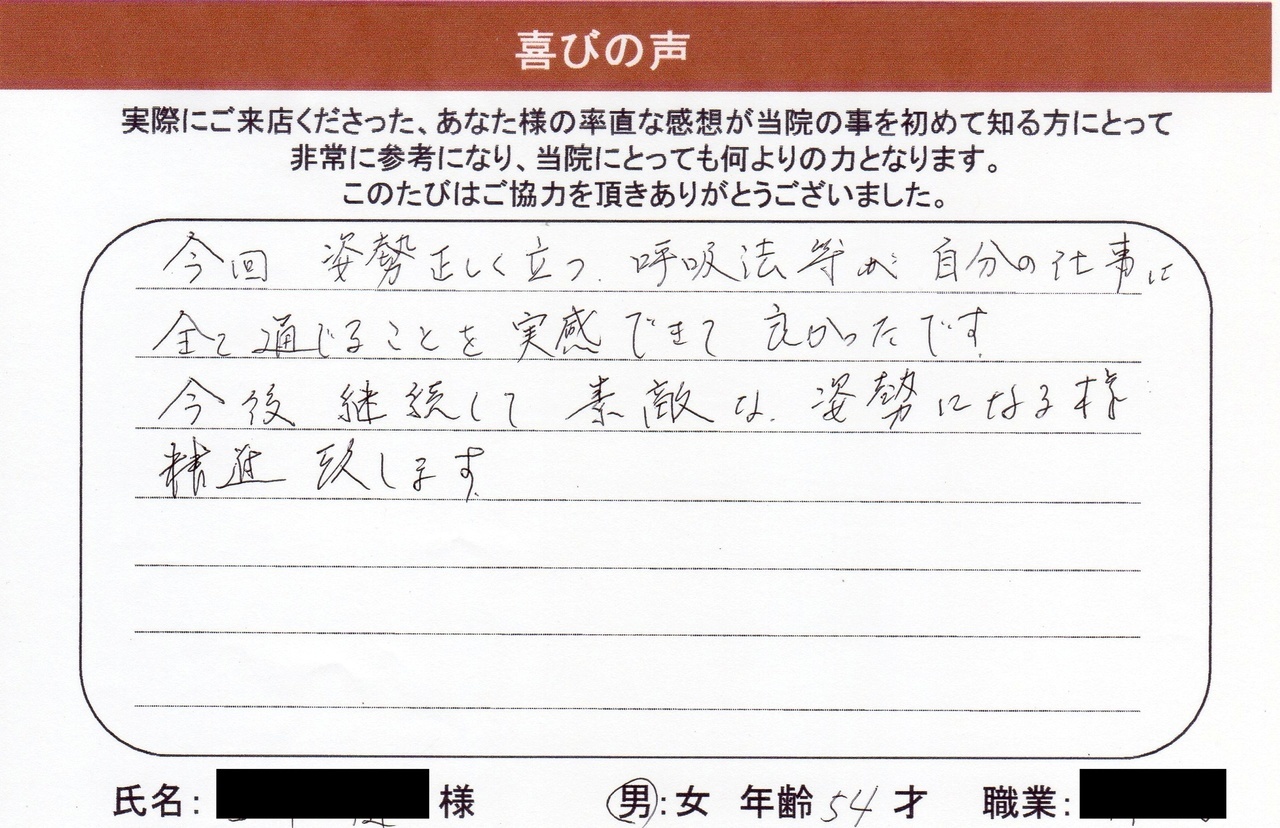 喜びの声
実際にご来店くださった、あなた様の率直な感想が当院の事を初めて知る方にとって
非常に参考になり、当院にとっても何よりの力となります。
このたびはご協力を頂きありがとうございました。
今回 姿勢正しく立つ、呼吸法等が 自分の仕事に
全て通じることを 実感できて 良かったです。
今後 継続して 素敵な 姿勢になる様
精進 致します。
氏名: 様 男:女 年齢 54 才 職業: